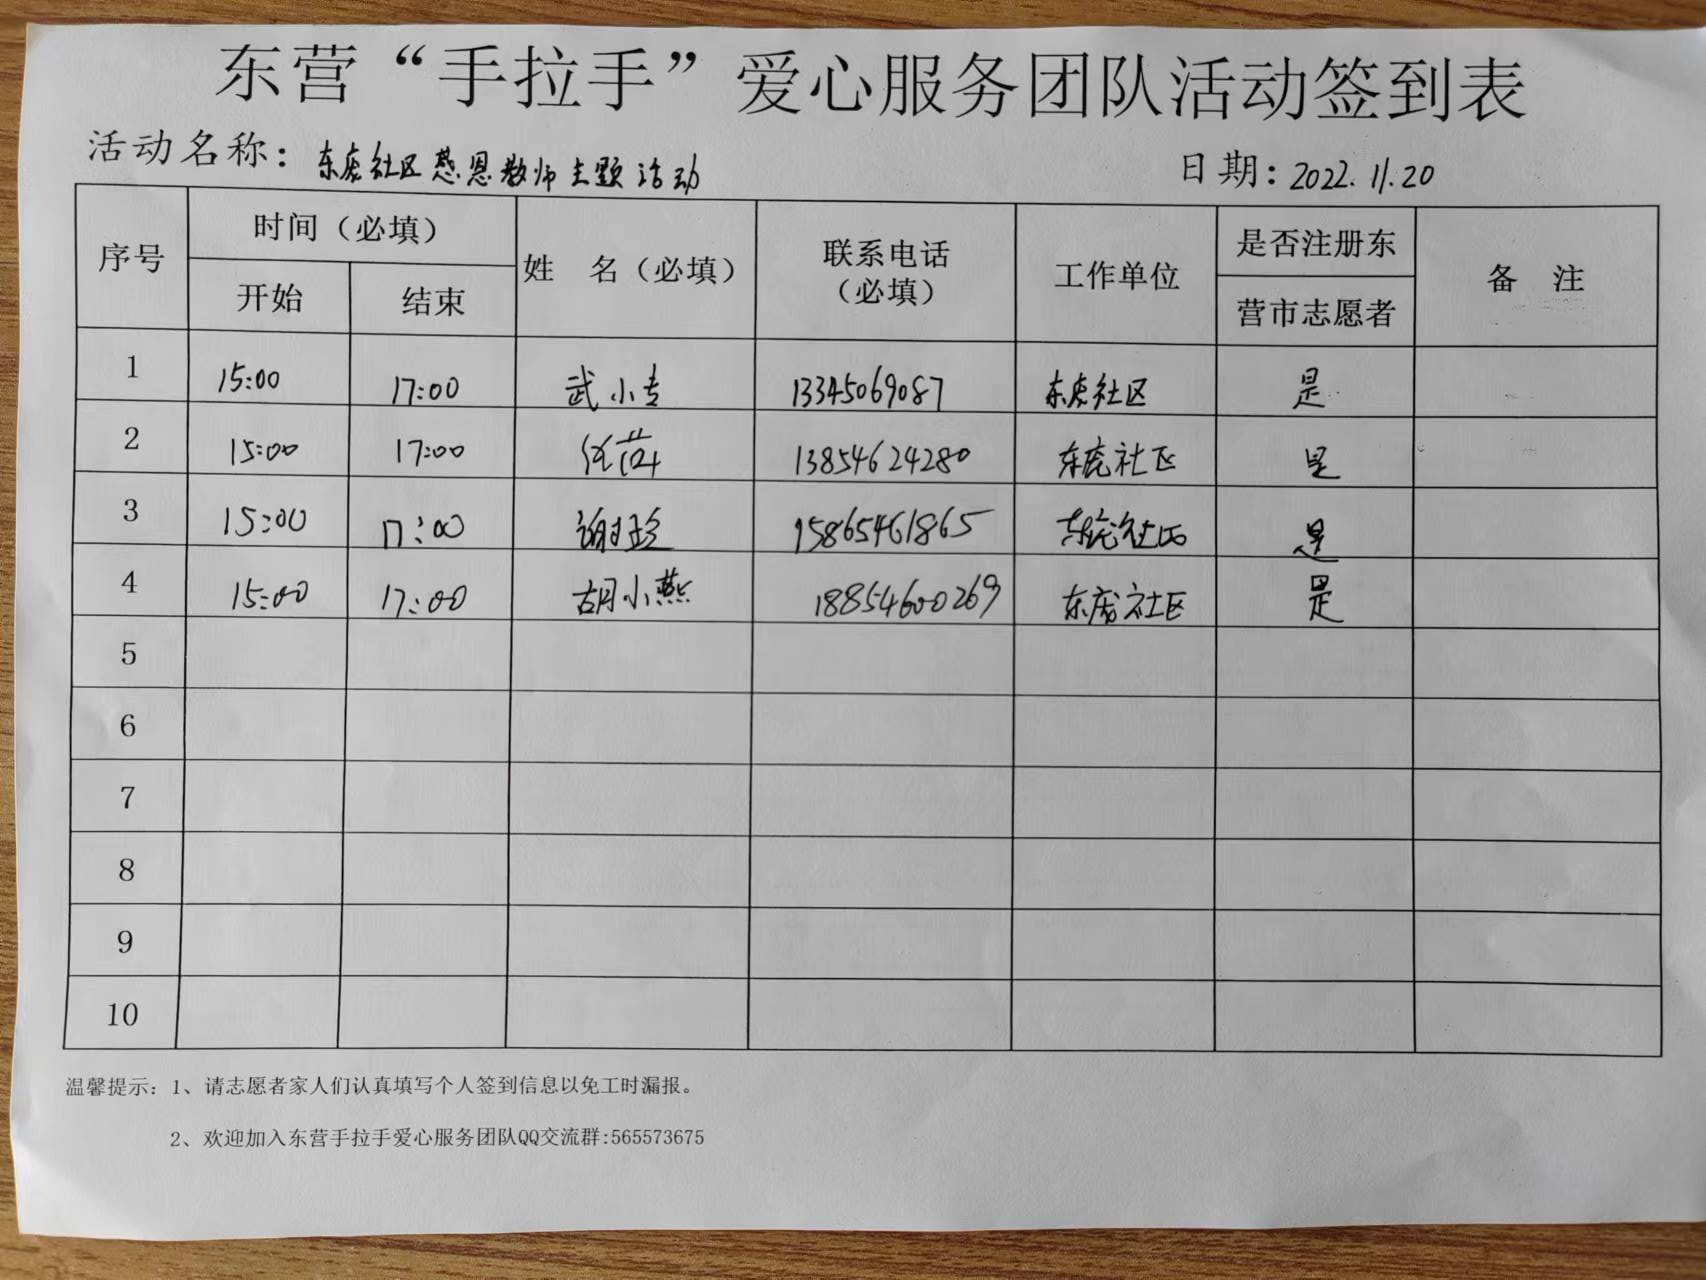 东营“手拉手”爱心服务团队活动签到表
活动名称：东虎社区感恩教师主题活动 日期：2022.11.20
序号 时间（必填） 姓 名（必填） 联系电话（必填） 工作单位 是否注册东营市志愿者 备 注
开始 结束
1 15:00 17:00 武小专 13345069087 东虎社区 是
2 15:00 17:00 任萍 13854624280 东虎社区 是
3 15:00 17:00 谢玲 15865461865 东虎社区 是
4 15:00 17:00 胡小燕 18854600269 东虎社区 是
5
6
7
8
9
10
温馨提示：1、请志愿者家人们认真填写个人签到信息以免工时漏报。
2、欢迎加入东营手拉手爱心服务团队QQ交流群:565573675